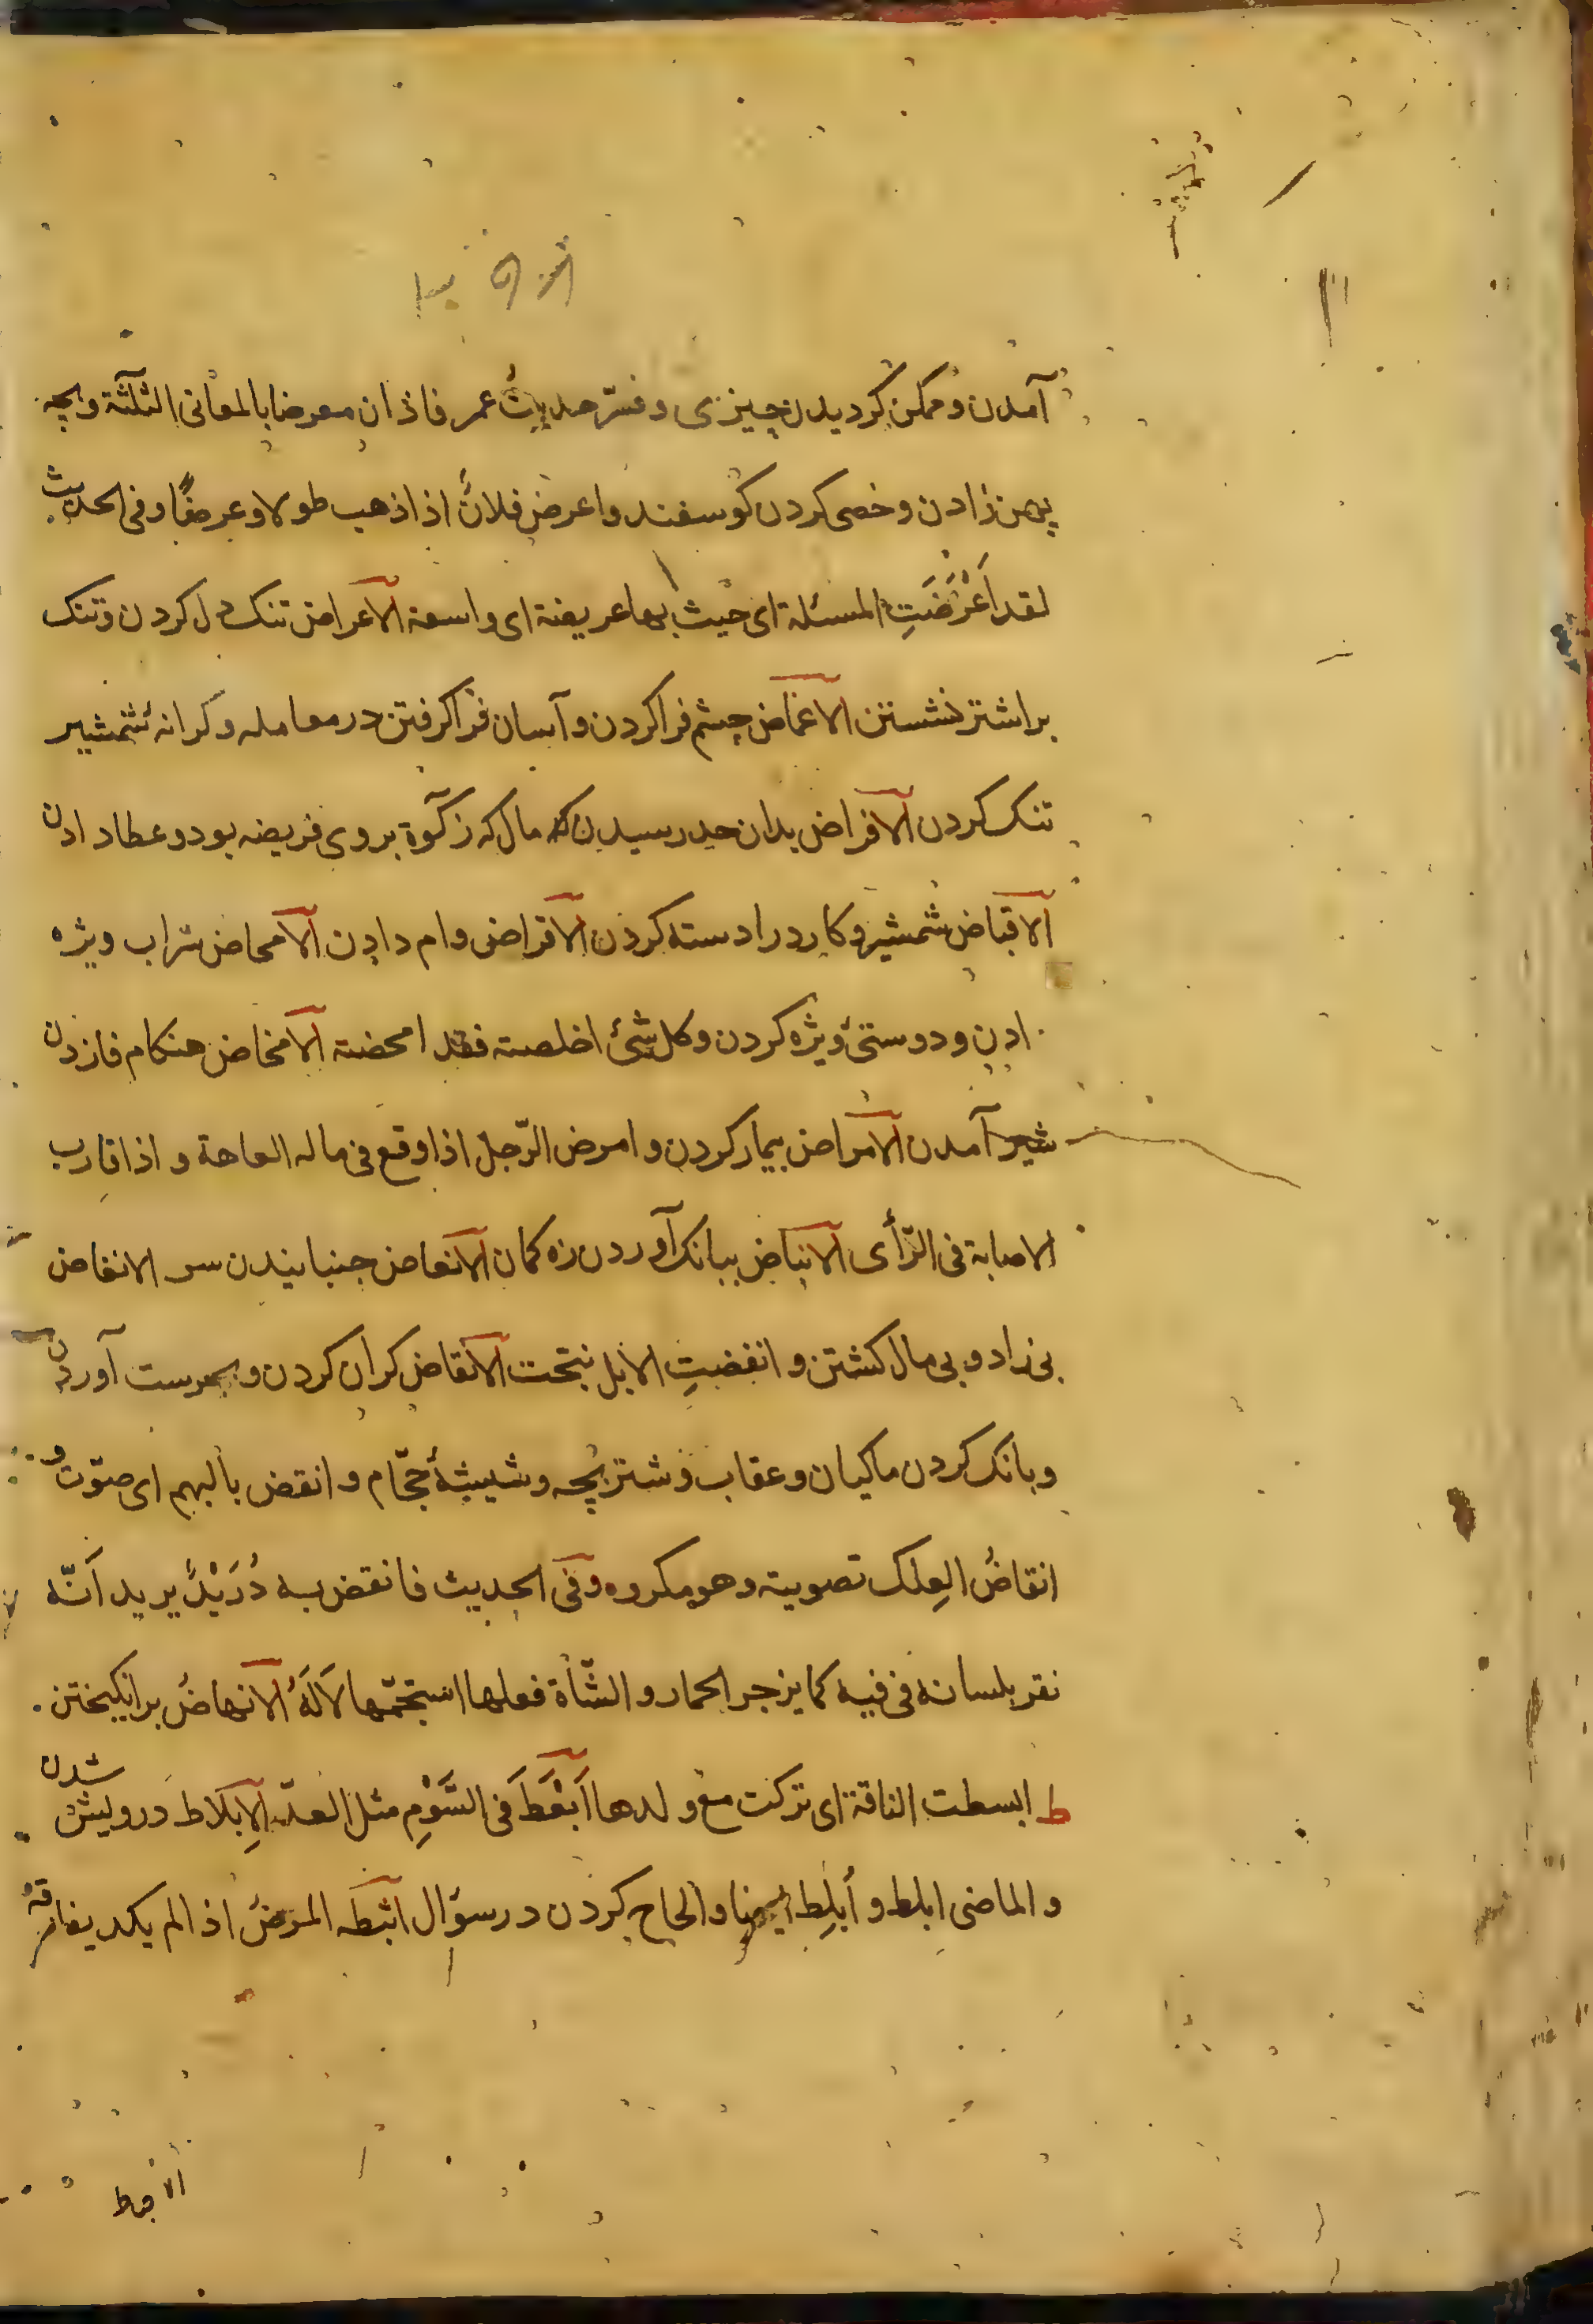 آمدن و ممکن کردیدن چیزی و فسّر حدیثُ عمر فاذان معرضا بالمعانی الثلٰثة وبچه
پهن زادن و خصی کردن کوسفند واعرض فلانٌ اذا ذهب طولا وعرضًا وفی الحدیث
لقد اَعْرَضَتِ المسئلة ای جیث بها عریضة ای واسعة الاعراض تنک دل کردن وتنک
براشتر نشستن الاغماض چشم فراکردن و آسان فراکرفتن در معامله و کرانهٔ شمشیر
تنک کردن الافراض بدان حد رسیدن مال که زکوٰة بروی فریضه بود و عطا دادن
الاقباض شمشیر و کارد را دسته کردن الاقراض وام دادن الامحاض شراب ویژه
دادن و دوستیٔ ویژه کردن و کل شیٔ اخلصته فقد امحضته الامخاض هنکام فازدن
شیر آمدن الامراض بیمار کردن و امرض الرّجل اذا وقع فی ماله العاهة و اذا قارب
الاصابة فی الرّأی الانباض ببانک آوردن زه کمان الانغاض جنبانیدن سر الانفاض
بی زاد و بی مال کشتن و انفضتِ الابل نتجت الانقاض کران کردن و آوردن
و بانک کردن ماکیان و عقاب و شتربچه و شیشهٔ حجّام و انقض بالبهم ای صوّت و
انقاضُ العِلک تصویته و هو مکروه وفی الحدیث فانقض به دُرَیْدٌ یرید اَنّه
نقر بلسانه فی فیه کما یزجر الحمار و الشّاة فعلها استجهلا لَهُ الانهاضُ برانکیختن
ط ابسطت الناقة ای ترکت مع ولدها اَبْعَطَ فی السَّوْمِ مثل ابعد الاِبلاط درویش شدن
و الماضی ابلط و اُبلِط ایضا و الحاح کردن در سؤال اثبطه المرضُ اذا لم یکد یفارقه